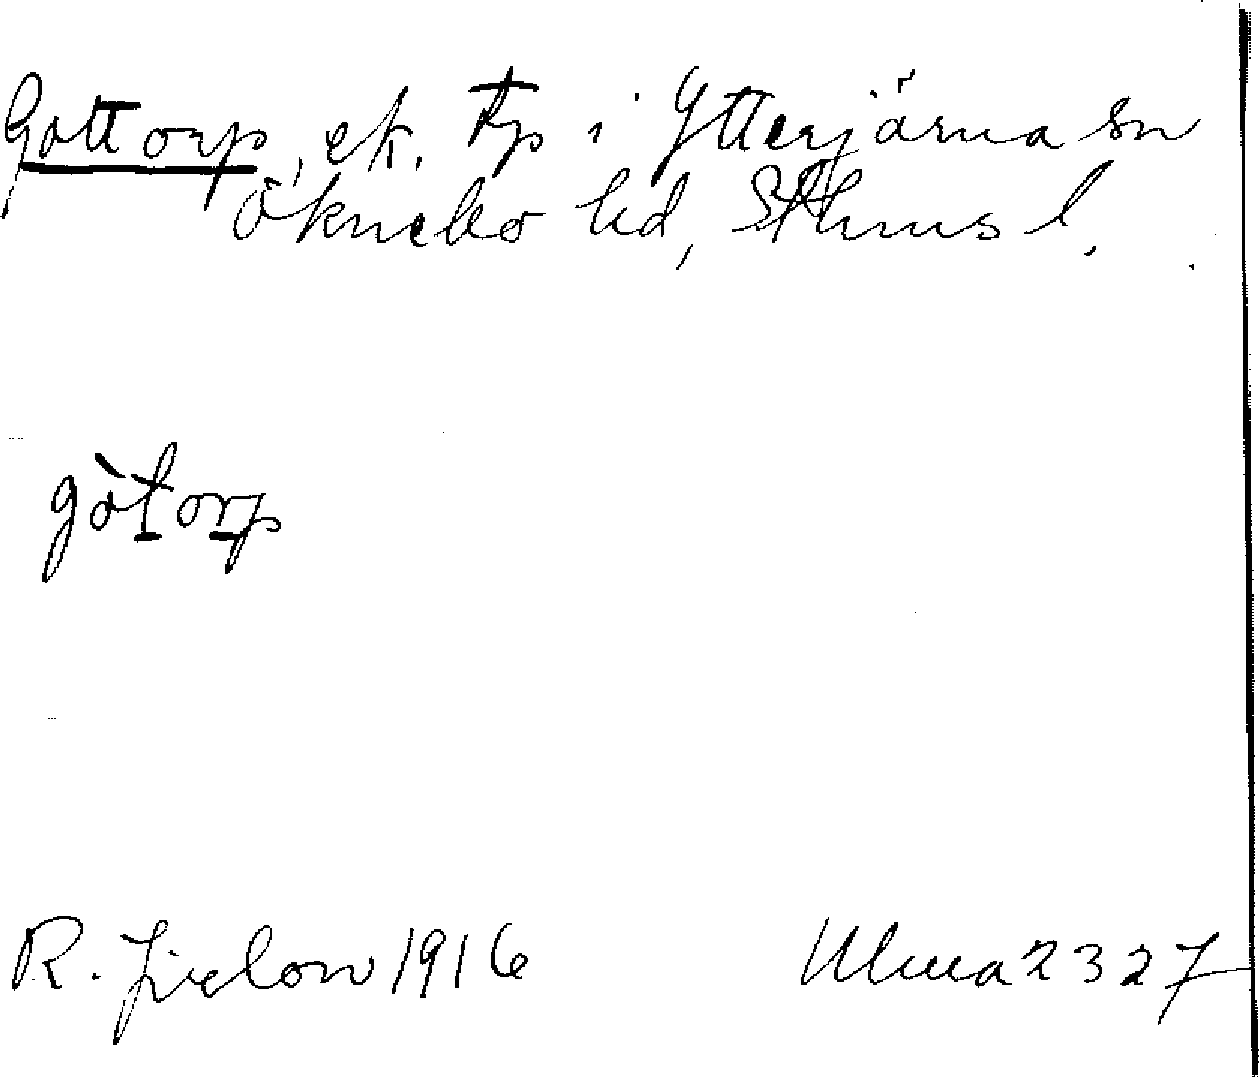 Gottorp, ek. Tp i Ytterjärna sn
Öknebo hd, Sthms l.
gòtorp
R. Jirlow 1916 Ulma 2327